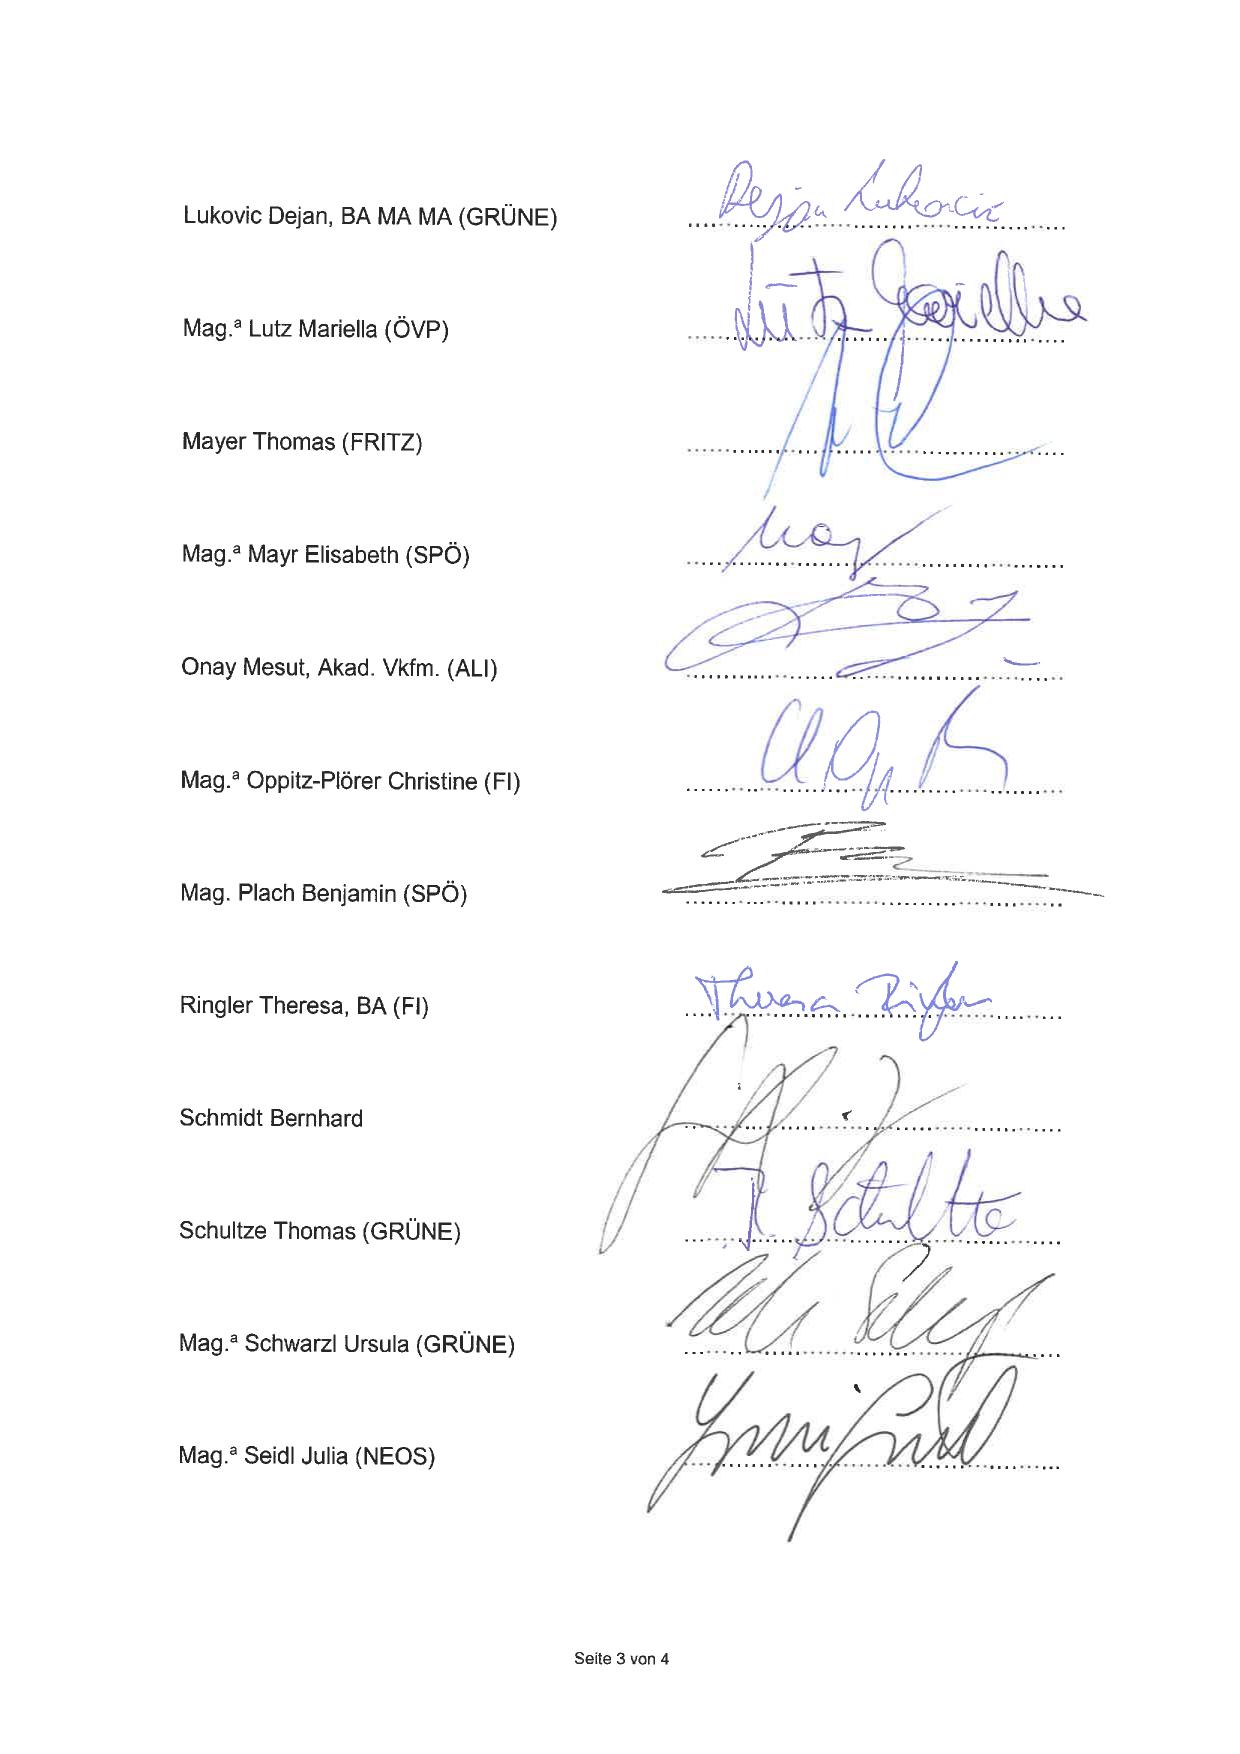 Lukovic Dejan, BA MA MA (GRÜNE) Dejan Lukovic
Mag.ª Lutz Mariella (ÖVP) Lutz Mariella
Mayer Thomas (FRITZ)
Mag.ª Mayr Elisabeth (SPÖ)
Onay Mesut, Akad. Vkfm. (ALI)
Mag.ª Oppitz-Plörer Christine (FI)
Mag. Plach Benjamin (SPÖ)
Ringler Theresa, BA (FI) Theresa Ringler
Schmidt Bernhard
Schultze Thomas (GRÜNE)
Mag.ª Schwarzl Ursula (GRÜNE)
Mag.ª Seidl Julia (NEOS)
Seite 3 von 4